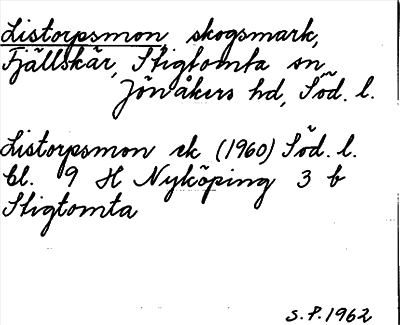 Listorpsmon skogsmark,
Fjällskär, Stigtomta sn,
Jönåkers hd, Söd. l.
Listorpsmon ek (1960) Söd. l.
bl. 9 H Nyköping 3 b
Stigtomta
S.P. 1962